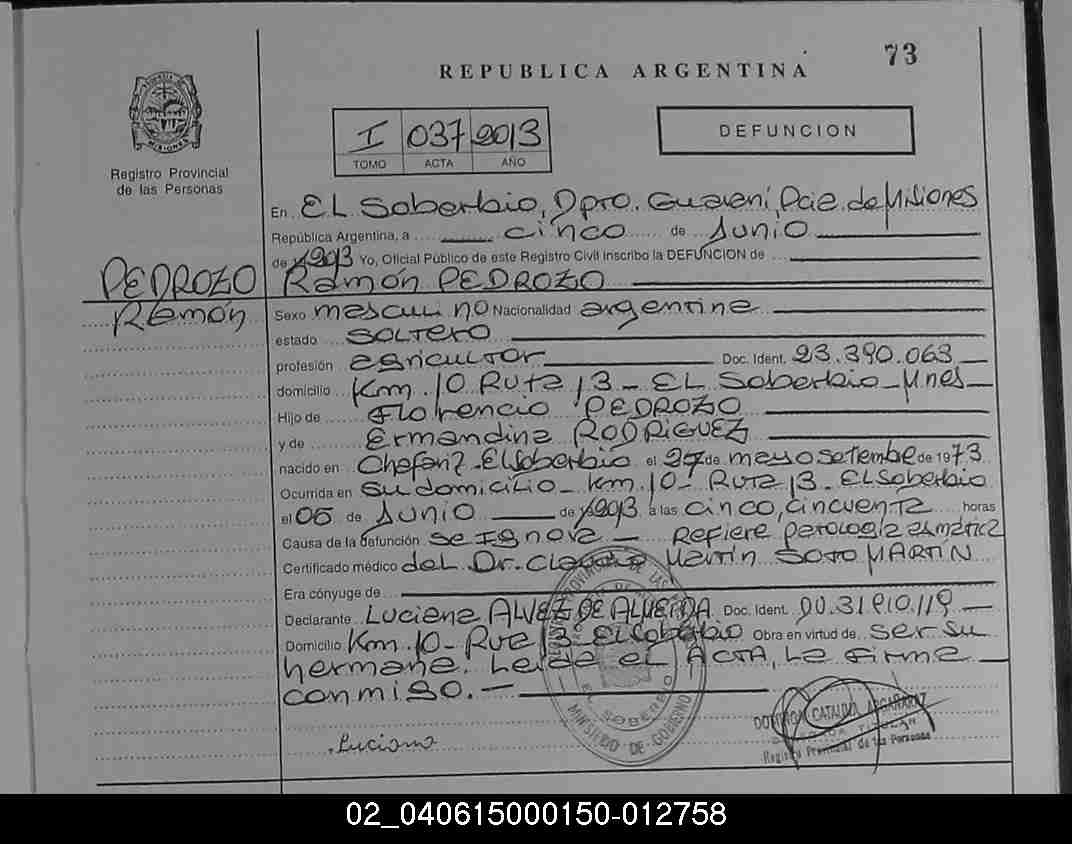 73
REPUBLICA ARGENTINA
I 037 2013
TOMO ACTA AÑO
DEFUNCION
Registro Provincial
de las Personas
En EL Soberbio, Dpto. Guarani, Pcia. de Misiones
República Argentina, a cinco de Junio
de 2013 Yo, Oficial Público de este Registro Civil inscribo la DEFUNCION de
PEDROZO Ramón PEDROZO
Ramón
Sexo masculino Nacionalidad argentina
estado soltero
profesión agricultor Doc. Ident. 23.390.063
domicilio Km. 10 Ruta 13 - EL Soberbio - Mnes
Hijo de Florencio PEDROZO
y de Ermandina RODRIGUEZ
nacido en El Soberbio el 27 de setiembre de 1973
Ocurrida en su domicilio - Km. 10 - Ruta 13 - EL Soberbio
el 05 de Junio de 2013 a las cinco, cincuenta horas
Causa de la defunción se Ignora - Refiere patología asmática
Certificado médico del Dr. Claudio Martin SOTO MARTIN
Era cónyuge de
Declarante Luciana ALVEZ DE ALMEIDA Doc. Ident. DU.31.910.119
Domicilio Km. 10 - Ruta 13 El Soberbio Obra en virtud de ser su
hermana. Leída el ACTA, La firma
conmigo.
EL SOBERBIO
MINISTERIO DE GOBIERNO
Luciana
Registro Provincial de las Personas
02_040615000150-012758